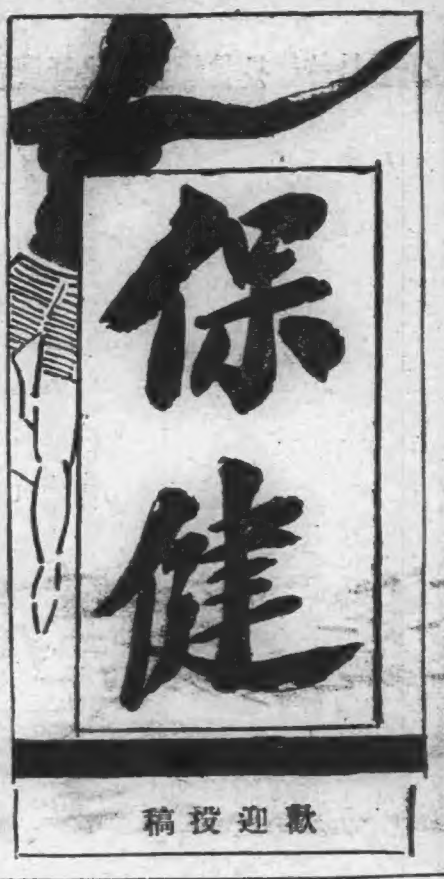 保健
歡迎投稿